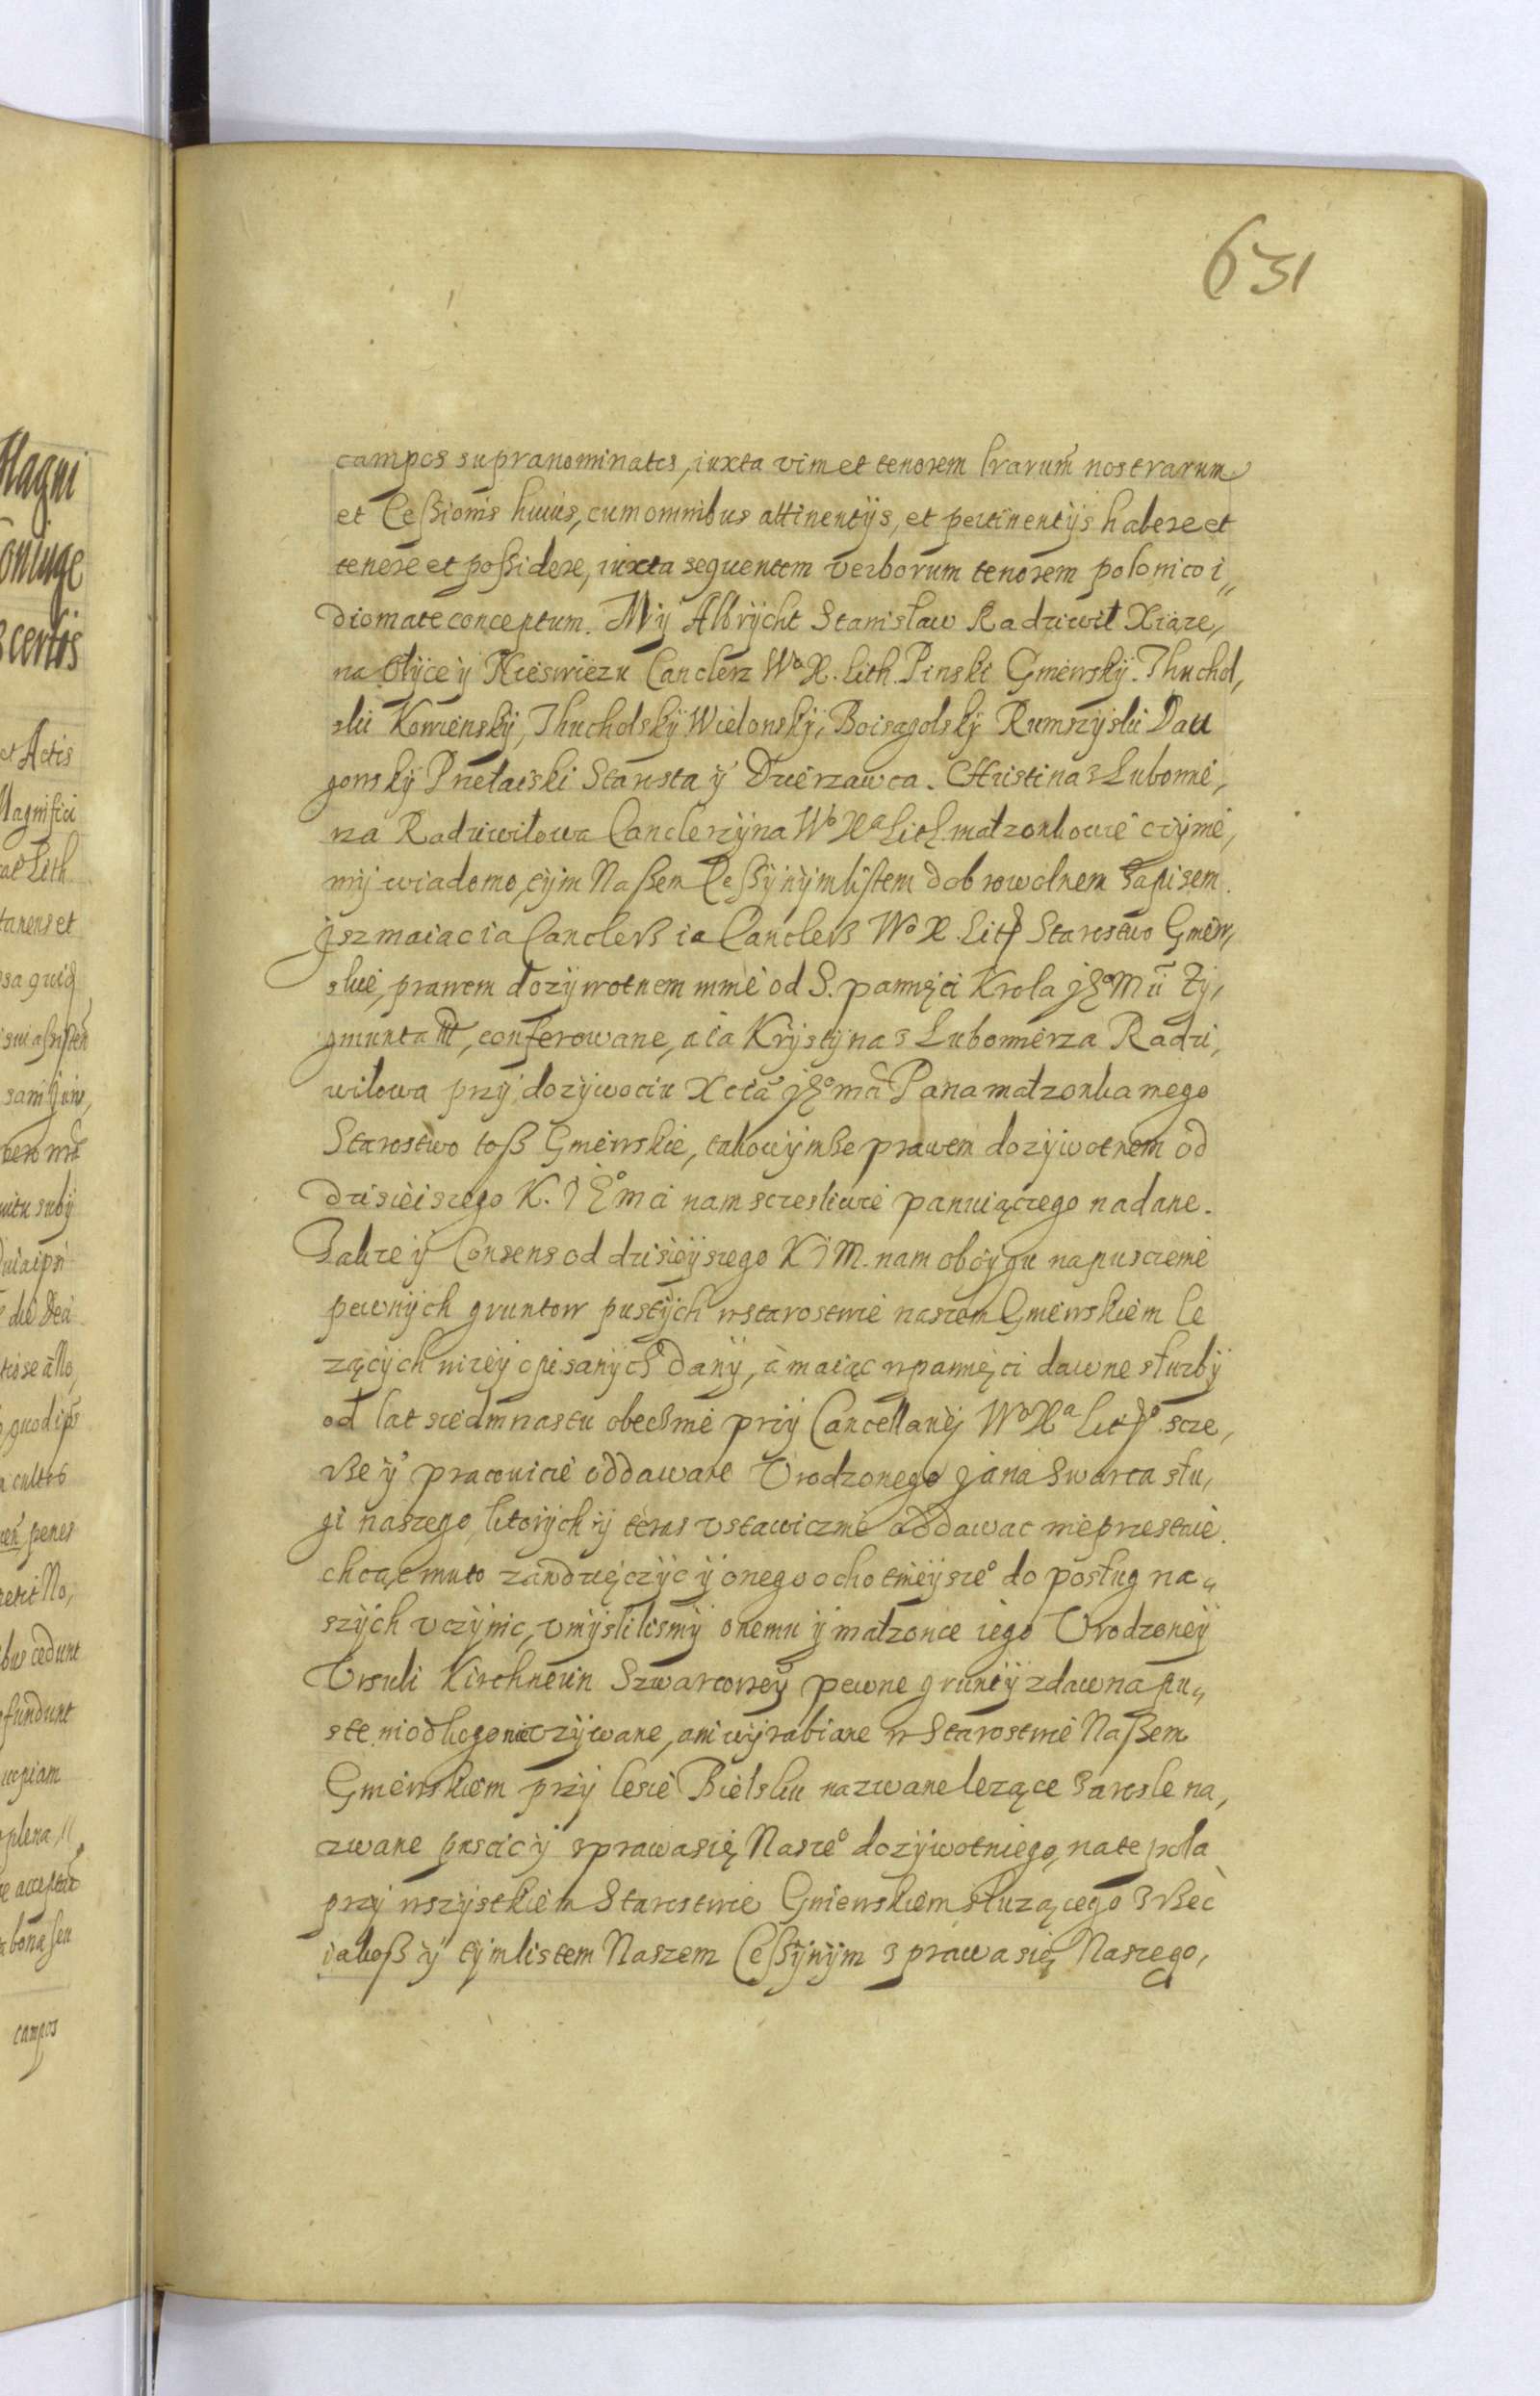 631
campos supranominatos, iuxta vim et tenorem lrarum nostrarum
et Ceßionis huius, cum omnibus attinentijs, et pertinentijs habere et
tenere et poßidere, iuxta sequentem verborum tenorem polonico i„
diomate conceptum. My Albrycht Stanisław Radziwił Xiąze,
na Ołyce ÿ Nieswiezu Canclerz Wo X. Lith. Pinski Gmewskÿ. Thuchol,
ski Kowienskÿ, Thucholskÿ Wielonskÿ, Boisagolskÿ Rumszÿski Dau
gowskÿ Przełaiski Starosta ÿ Dzierzawca. Christina s Lubomie,
rza Radziwiłowa Canclerzÿna Wo Xa Lith małzonkowie czÿnie,
mÿ wiadomo, tÿm Naßem Ceßÿnÿm listem dobrowolnem Zapisem.
Jsz maiac ia Canclerß ia Canclerß Wo X. Lith Starostwo Gmew,
skie, prawem dozÿwotnem mnie od S. pamięci Krola JEo Mci Zÿ,
gmunta III, conferowane, a ia Krÿstÿna s Lubomierza Radzi,
wiłowa przÿ dozÿwociu Xcia JEo mci Pana małzonka mego
Starostwo toß Gmewskie, takowÿmße prawem dozÿwotnem od
dzisieiszego K. J Eo mci nam sczesliwie panuiączego nadane.
Takze ÿ Consens od dzisieÿszego K J M. nam oboÿgu na pusczenie
pewnÿch gruntow pustÿch w starostwie naszem Gmewskiem le
zącÿch nizeÿ opisanÿch danÿ, a maiąc w pamięci dawne słuzbÿ
od lat siedmnastu obecßnie przÿ Cancellariej Wo Xa Litho scze,
rße ÿ pracowicie oddawane Vrodzonego Jana Swarca słu,
gi naszego, ktorÿch ÿ teras vstawicznie oddawac nieprzestaie.
chcąc mu to zawdzięczÿc ÿ onego ochotnieÿszeo do posług na„
szÿch vczÿnic, vmÿslilismÿ onemu ÿ małzonce iego Vrodzoneÿ
Vrsuli Kirchnerin Szwarcoweÿ pewne gruntÿ zdawna pu„
ste niodkogo nievzÿwane, ani wÿrabiane w Starostwie Naßem
Gmewskiem przÿ lesie Bielsku nazwane lezące Zarosle na,
zwane puscic ÿ sprawa się Naszeo dozÿwotniego, na te pola
przÿ wszÿstkiem Starostwie Gniewskiem słuzącego zrßec
iakoß ÿ tÿm listem Naszem Ceßÿnÿm s prawa się Naszego,